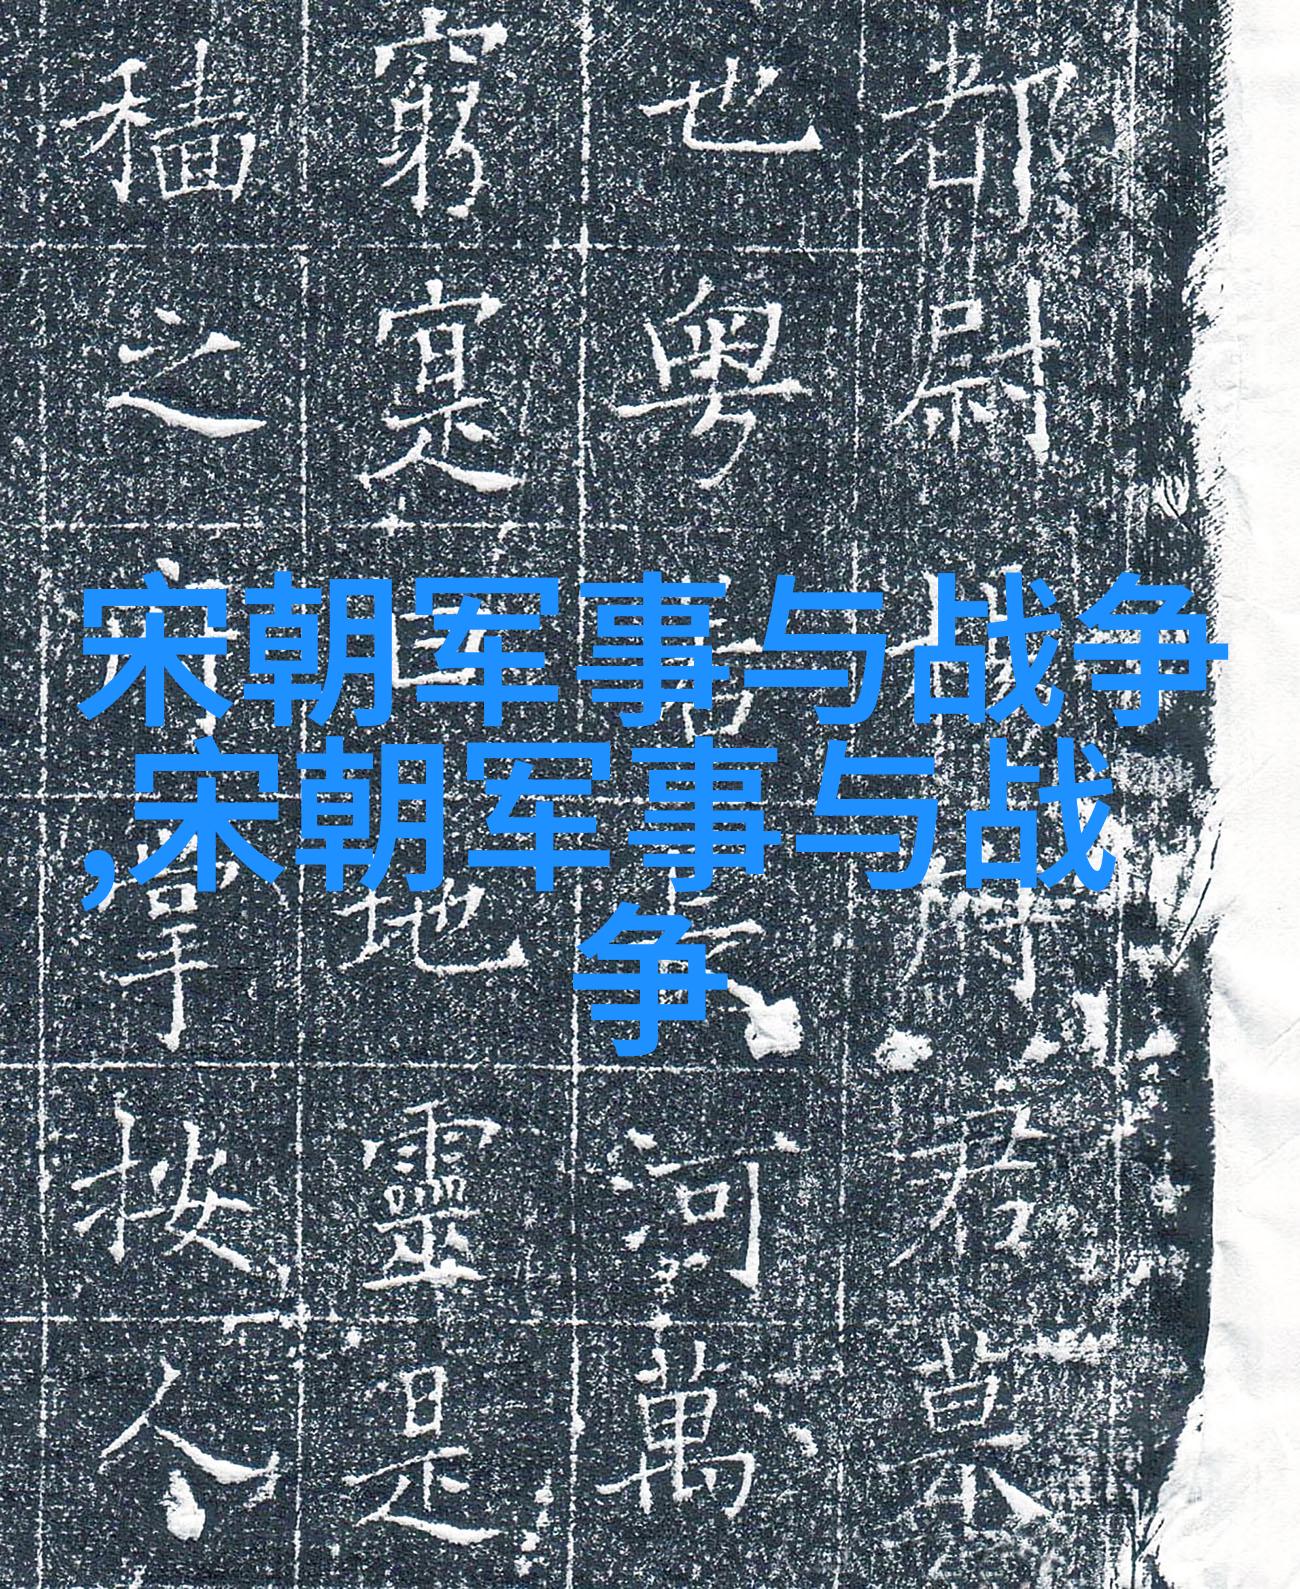 都尉
也粤河萬
窮寔地靈是
穡之掌按人
宋朝军事与战争
,宋朝军事与战
争